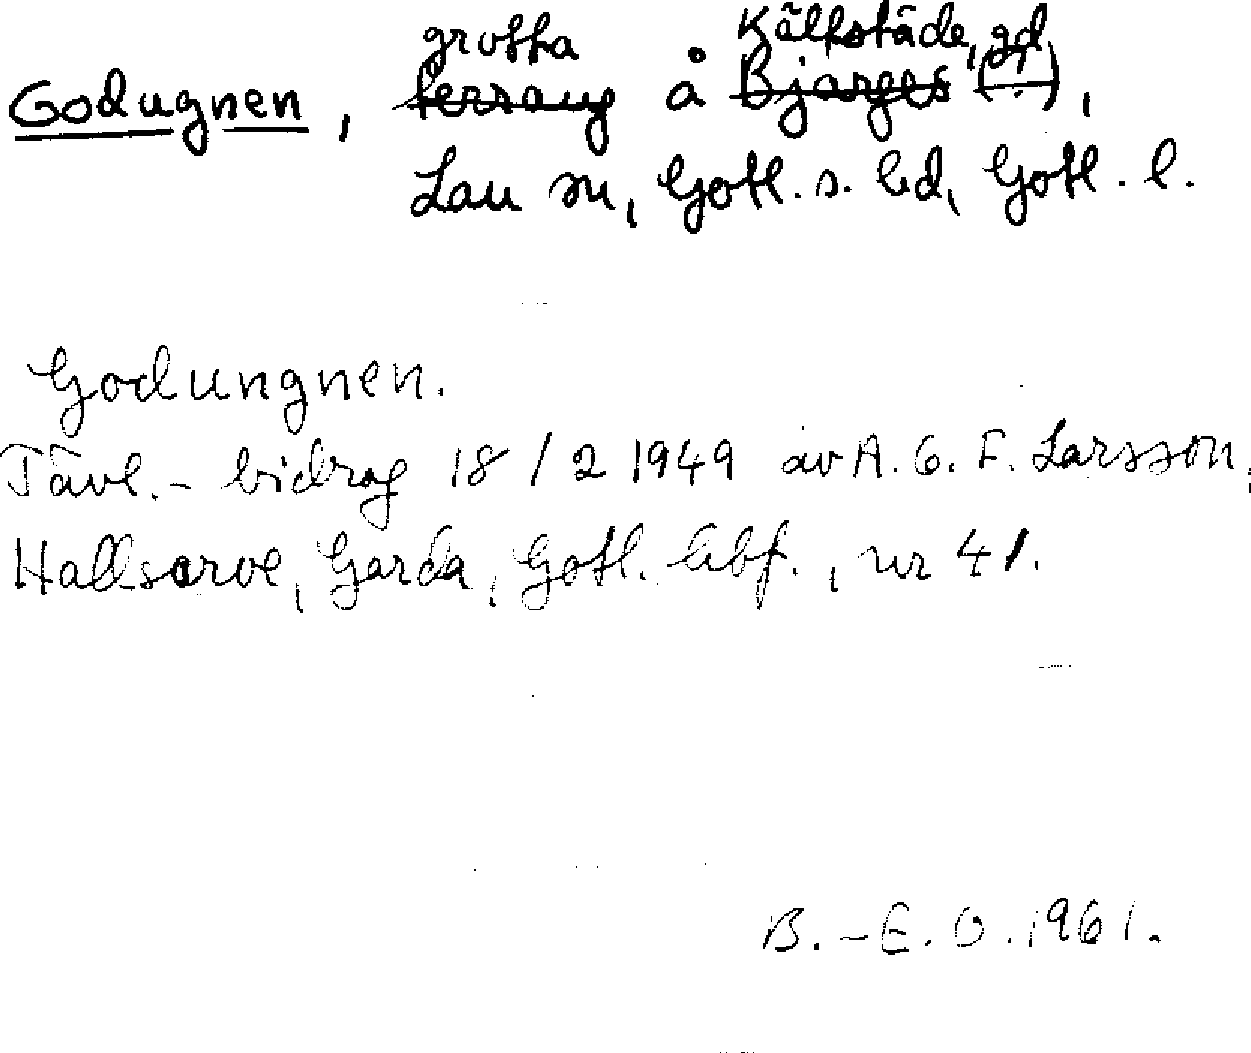 grotta Kälkstäde, gd
Godugnen, terräng å Bjärges (?),
Lau sn, Gotl. s. hd, Gotl. l.
Godungnen.
Tävl.- bidrag 18/2 1949 av A. G. F. Larsson,
Hallsarve, Garda, Gotl. hbf., nr 41.
B.-E. O. 1961.